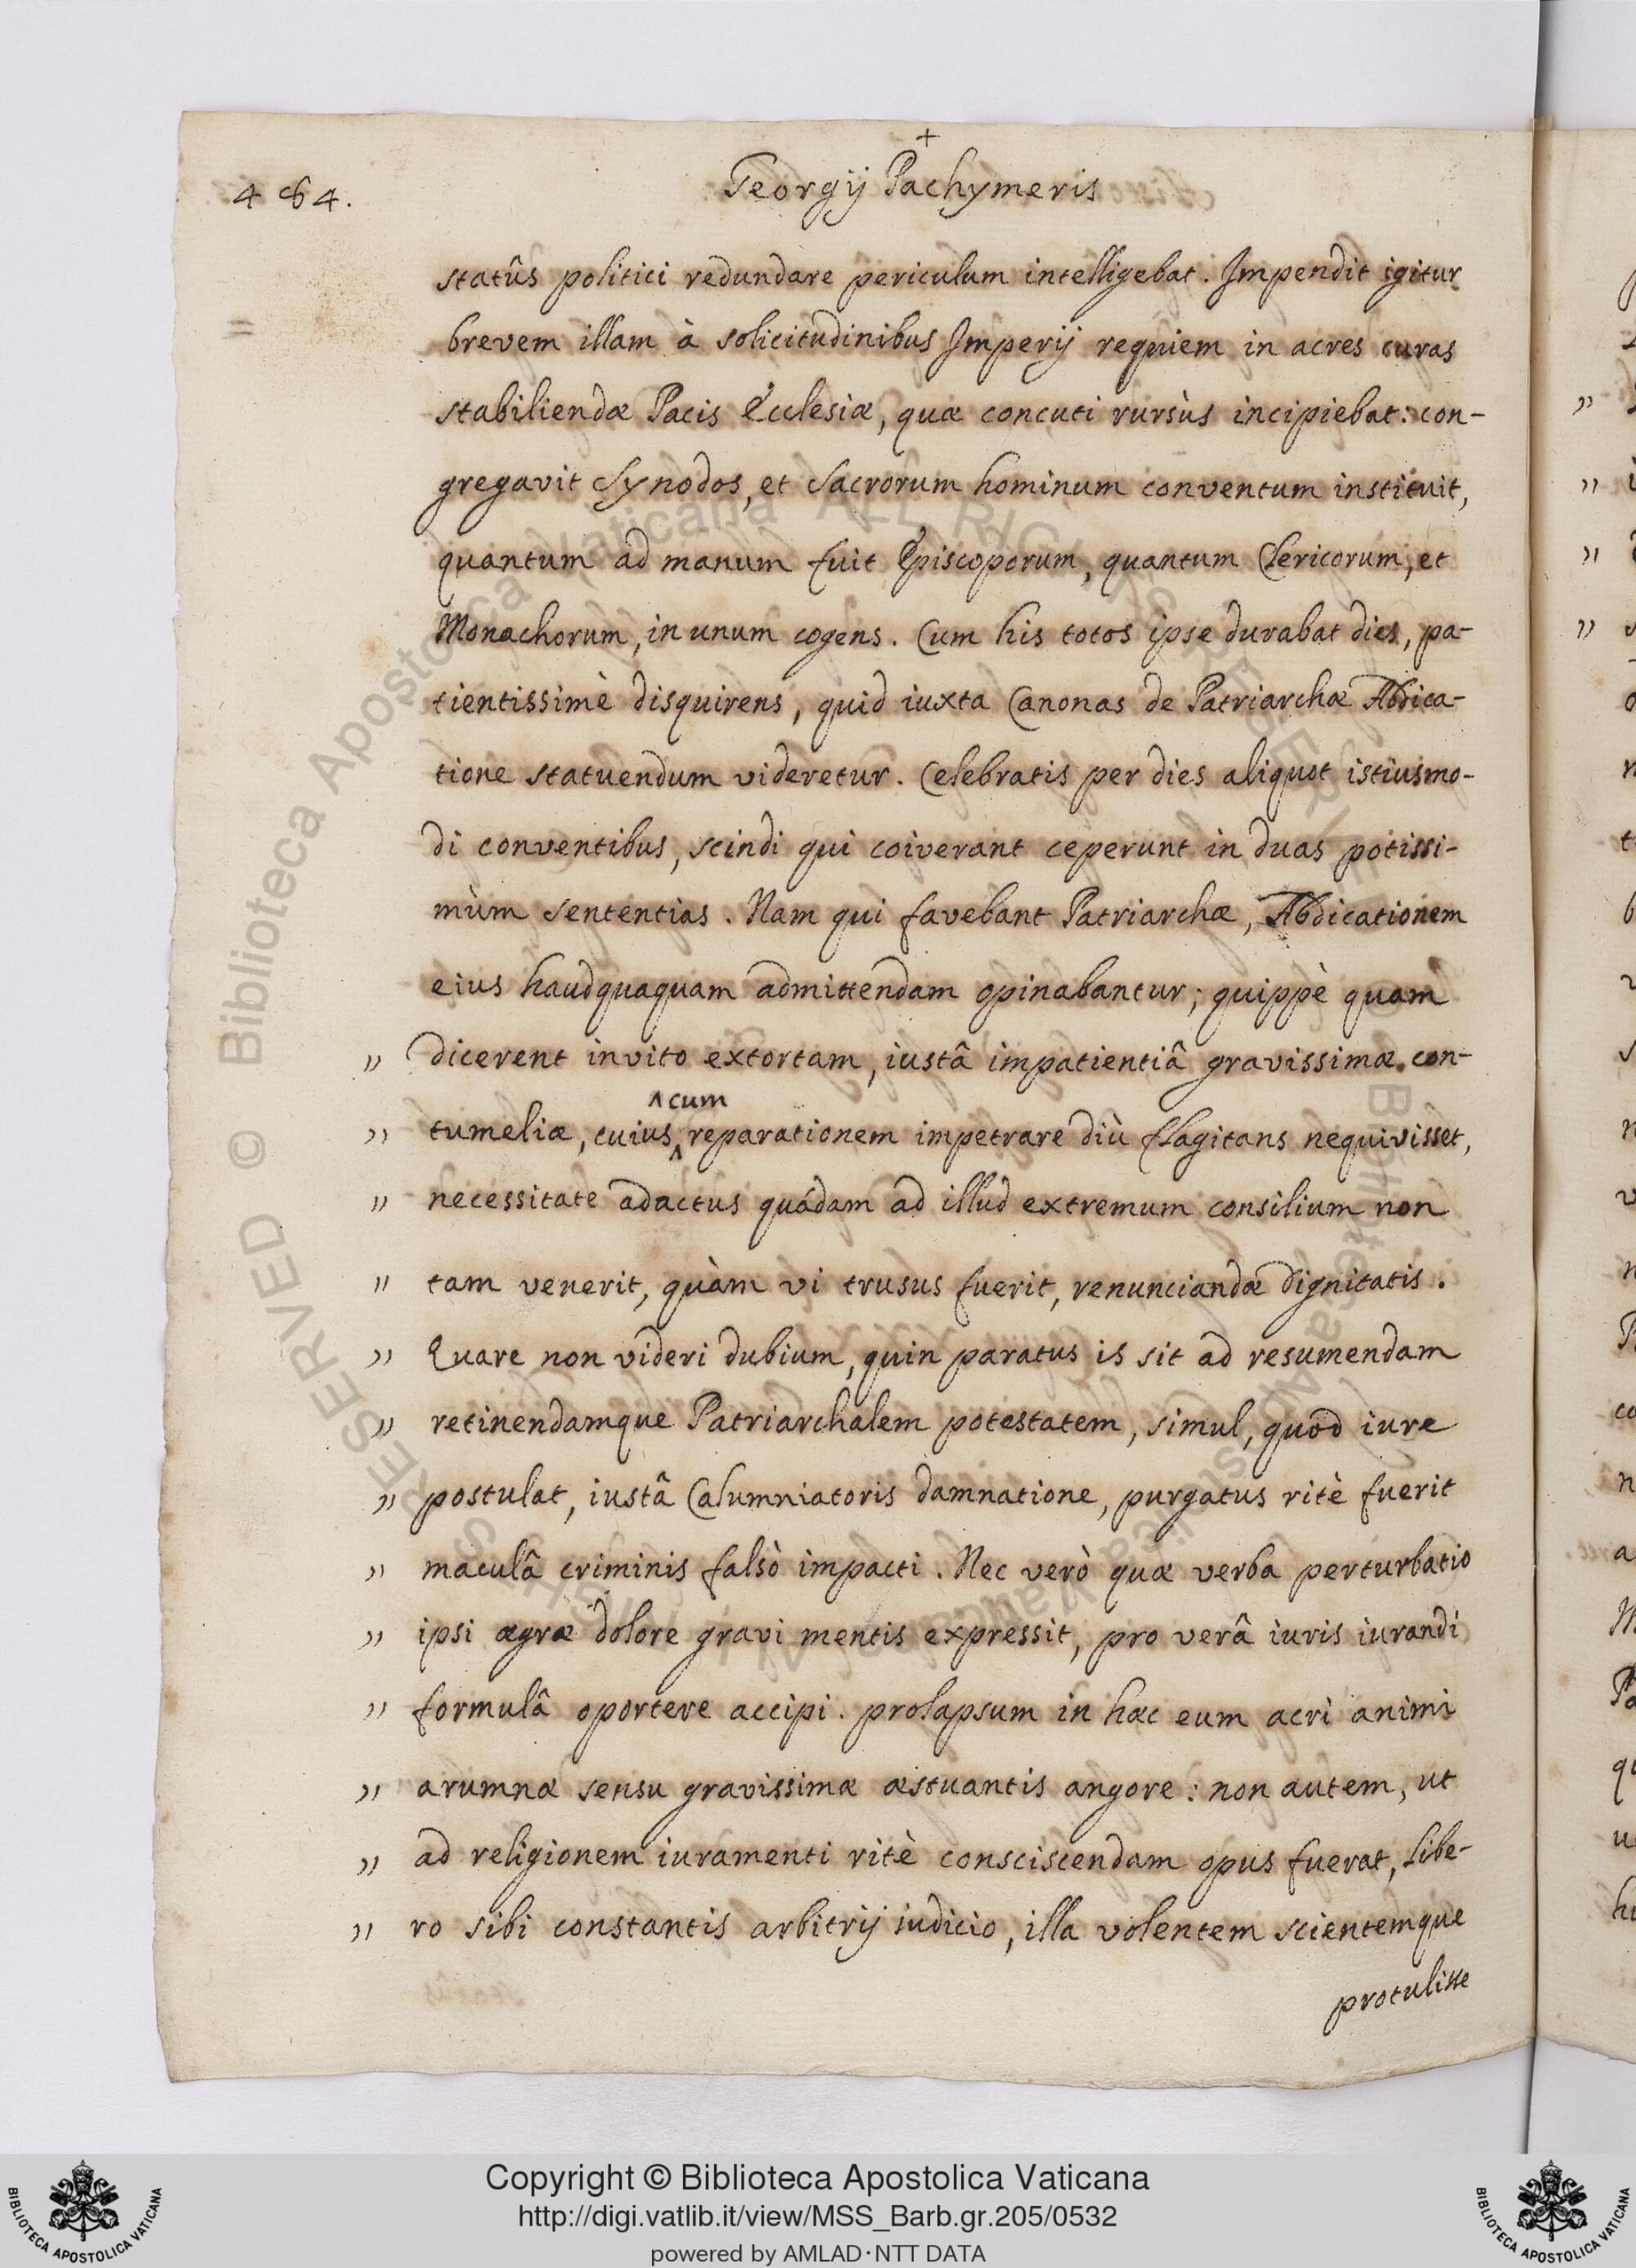 +
484. Georgij Pachymeris
statûs politici redundare periculum intelligebat. Impendit igitur
brevem illam à solicitudinibus Imperij requiem in acres curas
stabiliendæ Pacis Ecclesiæ, quæ concuti rursùs incipiebat: con-
gregavit Synodos, et Sacrorum hominum conventum instituit,
quantum ad manum fuit Episcoporum, quantum Clericorum, et
Monachorum, in unum cogens. Cum his totos ipse durabat dies, pa-
tientissimè disquirens, quid iuxta Canonas de Patriarchæ Abdica-
tione statuendum videretur. Celebratis per dies aliquot istiusmo-
di conventibus, scindi qui coiverant ceperunt in duas potissi-
mùm sententias. Nam qui favebant Patriarchæ, Abdicationem
eius haudquaquam admittendam opinabantur; quippè quam
" dicerent invito extortam, iustâ impatientiâ gravissimæ con-
^cum
" tumeliæ, cuius^reparationem impetrare diù flagitans nequivisset,
" necessitate adactus quádam ad illud extremum consilium non
" tam venerit, quàm vi trusus fuerit, renunciandæ dignitatis.
" Quare non videri dubium, quin paratus is sit ad resumendam
" retinendamque Patriarchalem potestatem, simul, quod iure
" postulat, iustâ Calumniatoris damnatione, purgatus ritè fuerit
" maculâ criminis falsò impacti. Nec verò quæ verba perturbatio
" ipsi ægræ dolore gravi mentis expressit, pro verâ iuris iurandi
" formulâ oportere accipi. prolapsum in hæc eum acri animi
" ærumnæ sensu gravissimæ æstuantis angore: non autem, ut
" ad religionem iuramenti ritè consciscendam opus fuerat, libe-
" ro sibi constantis arbitrij iudicio, illa volentem scientemque
protulisse
Copyright © Biblioteca Apostolica Vaticana
http://digi.vatlib.it/view/MSS_Barb.gr.205/0532
powered by AMLAD·NTT DATA
BIBLIOTECA APOSTOLICA VATICANA
BIBLIOTECA APOSTOLICA VATICANA